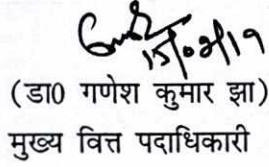 15/02/19
(डा0 गणेश कुमार झा)
मुख्य वित्त पदाधिकारी